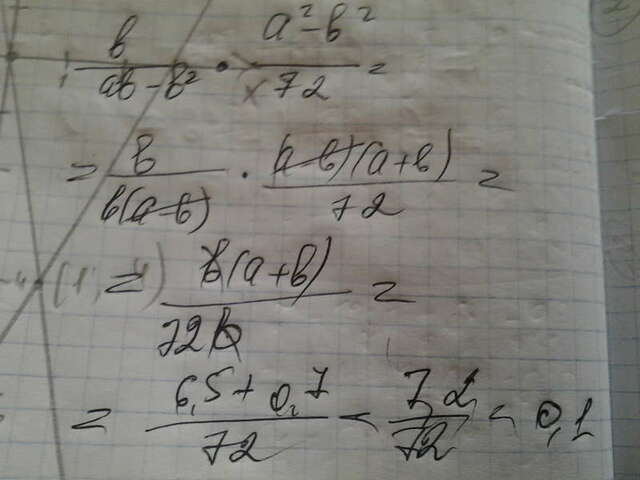 b/(ab - b²) · (a² - b²)/72 =
= b/(b(a-b)) · (a-b)(a+b)/72 =
= b(a+b)/(72b) =
= (6,5 + 0,7)/72 = 7,2/72 = 0,1